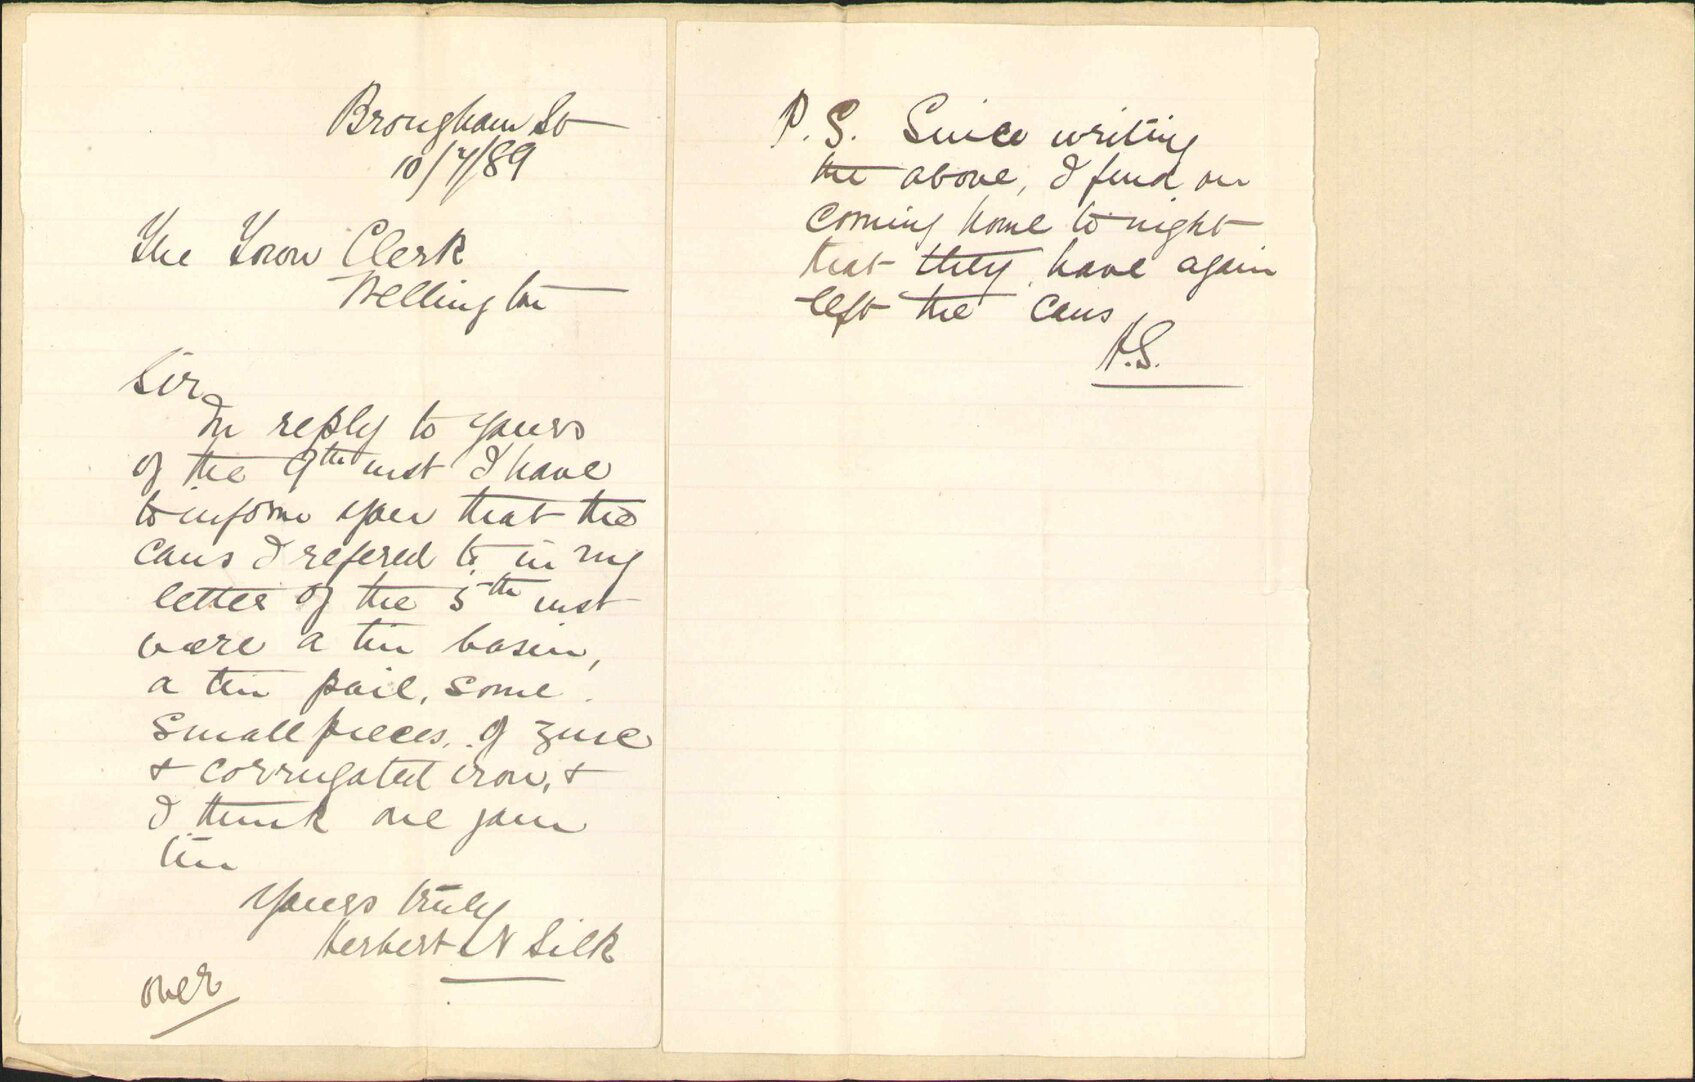 Brougham St
10/7/89
The Town Clerk
Wellington
Sir
In reply to yours
of the 9th inst I have
to inform you that the
cans I refered to in my
letter of the 5th inst
were a tin basin,
a tin pail, some
small pieces of zinc
& corrugated iron, &
I think one jam
tin
Yours truly
Herbert N Silk
over
P.S. Since writing
the above, I find on
coming home to night
that they have again
left the cans
H.S.